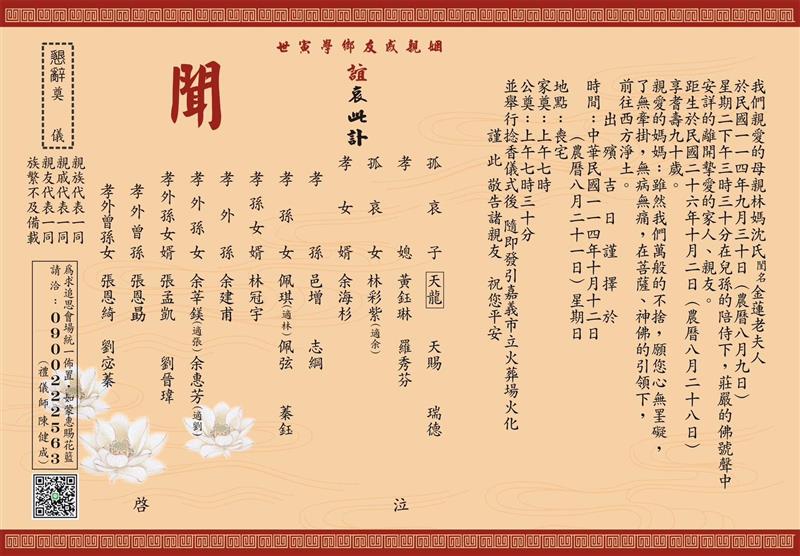 我們親愛的母親林媽沈氏閨名金蓮老夫人
於民國一一四年九月三十日（農曆八月九日）
星期二下午三時三十分在兒孫的陪侍下，莊嚴的佛號聲中
安詳的離開摯愛的家人、親友。
距生於民國二十六年十月二日（農曆八月二十八日）
享耆壽九十歲。
親愛的媽媽：雖然我們萬般的不捨，願您心無罣礙，
了無牽掛，無病無痛，在菩薩、神佛的引領下，
前往西方淨土。
出殯吉日謹擇於
時間：中華民國一一四年十月十二日
（農曆八月二十一日）星期日
地點：喪宅
家奠：上午七時
公奠：上午七時三十分
並舉行捻香儀式後 隨即發引嘉義市立火葬場火化
謹此敬告諸親友 祝您平安
姻親戚友鄉學寅世
誼哀此訃
聞
孤哀子 天龍 天賜 瑞德
孝媳 黃鈺琳 羅秀芬
孤哀女 林彩紫(適余)
孝女婿 余海杉
孝孫 邑增 志綱
孝孫女 佩琪(適林) 佩弦 蓁鈺
孝孫女婿 林冠宇
孝外孫 余建甫
孝外孫女 余莘鎂(適張) 余惠芳(適劉)
孝外孫女婿 張孟凱 劉晉瑋
孝外曾孫 張恩勗
孝外曾孫女 張恩綺 劉宓蓁
泣
啓
親族代表一同
親戚代表一同
親友代表一同
族繁不及備載
懇辭奠儀
為求追思會場統一佈置，如蒙惠賜花籃
請洽：0900222563
（禮儀師 陳健成）